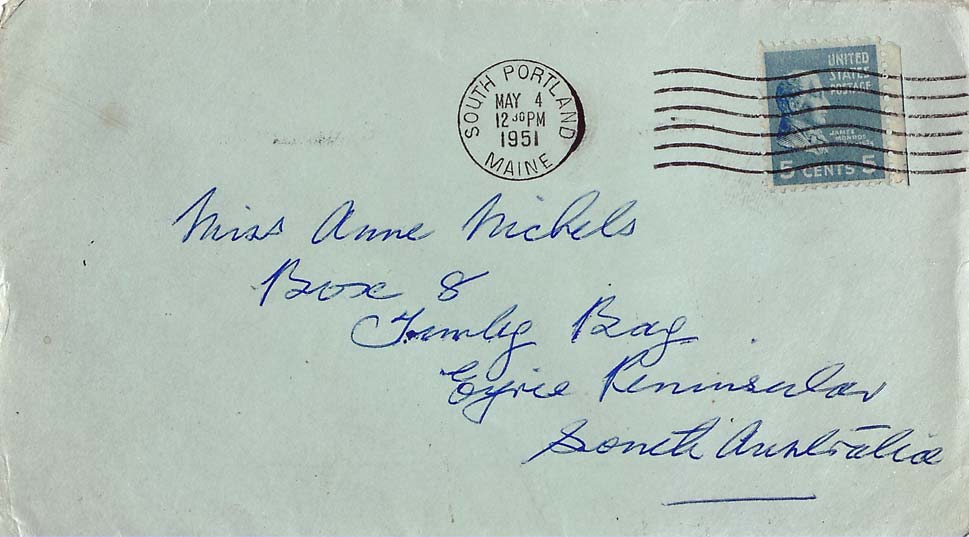 SOUTH PORTLAND
MAY 4
12 30 PM
1951
MAINE
UNITED
STATES
POSTAGE
JAMES
MONROE
5 CENTS 5
Miss Anne Nichels
Box 8
Tumby Bay
Eyrie Peninsular
South Australia